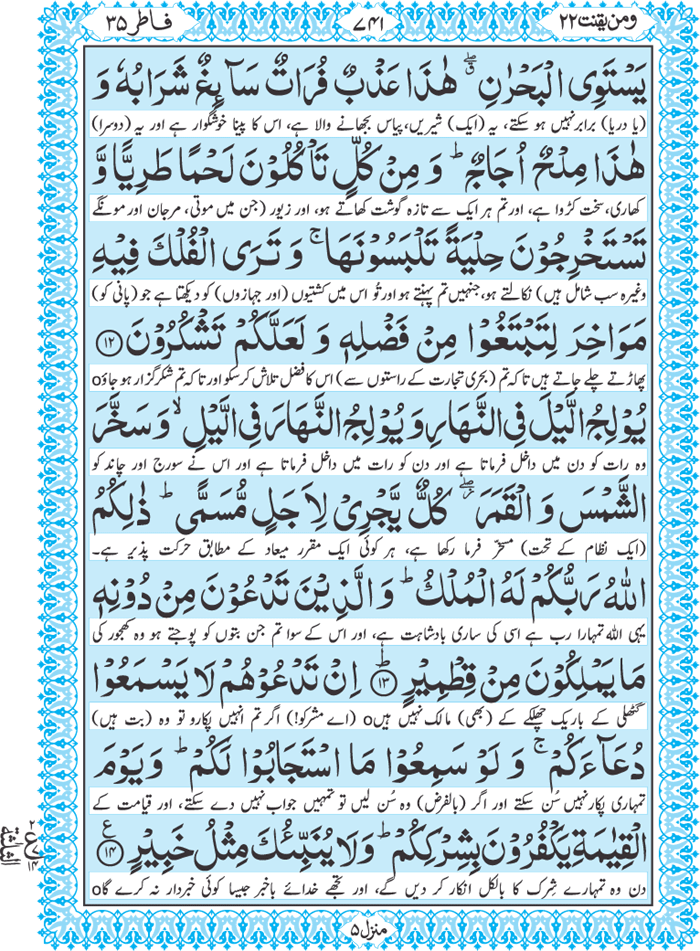 ومن یقنت ۲۲
۷۴۱
فاطر ۳۵
یَسْتَوِی الْبَحْرٰنِ ۖ هٰذَا عَذْبٌ فُرَاتٌ سَآىِٕغٌ شَرَابُهٗ وَ
(یا دریا) برابر نہیں ہو سکتے، یہ (ایک) شیریں، پیاس بجھانے والا ہے، اس کا پینا خوشگوار ہے اور یہ (دوسرا)
هٰذَا مِلْحٌ اُجَاجٌ ؕ وَ مِنْ كُلٍّ تَاْكُلُوْنَ لَحْمًا طَرِیًّا وَّ
کھاری، سخت کڑوا ہے، اور تم ہر ایک سے تازہ گوشت کھاتے ہو، اور زیور (جن میں موتی، مرجان اور مونگے
تَسْتَخْرِجُوْنَ حِلْیَةً تَلْبَسُوْنَهَا ۚ وَ تَرَی الْفُلْكَ فِیْهِ
وغیرہ سب شامل ہیں) نکالتے ہو، جنہیں تم پہنتے ہو اور تُو اس میں کشتیوں (اور جہازوں) کو دیکھتا ہے جو (پانی کو)
مَوَاخِرَ لِتَبْتَغُوْا مِنْ فَضْلِهٖ وَ لَعَلَّكُمْ تَشْكُرُوْنَ ۝۱۲
پھاڑتے چلے جاتے ہیں تاکہ تم (بحری تجارت کے راستوں سے) اس کا فضل تلاش کر سکو اور تاکہ تم شکرگزار ہو جاؤo
یُوْلِجُ الَّیْلَ فِی النَّهَارِ وَ یُوْلِجُ النَّهَارَ فِی الَّیْلِ ۙ وَ سَخَّرَ
وہ رات کو دن میں داخل فرماتا ہے اور دن کو رات میں داخل فرماتا ہے اور اس نے سورج اور چاند کو
الشَّمْسَ وَ الْقَمَرَ ۖ كُلٌّ یَّجْرِیْ لِاَجَلٍ مُّسَمًّی ؕ ذٰلِكُمُ
(ایک نظام کے تحت) مسخّر فرما رکھا ہے، ہر کوئی ایک مقرر میعاد کے مطابق حرکت پذیر ہے۔
اللّٰهُ رَبُّكُمْ لَهُ الْمُلْكُ ؕ وَ الَّذِیْنَ تَدْعُوْنَ مِنْ دُوْنِهٖ
یہی اللہ تمہارا رب ہے اسی کی ساری بادشاہت ہے، اور اس کے سوا تم جن بتوں کو پوجتے ہو وہ کھجور کی
مَا یَمْلِكُوْنَ مِنْ قِطْمِیْرٍ ؕ۝۱۳ اِنْ تَدْعُوْهُمْ لَا یَسْمَعُوْا
گٹھلی کے باریک چھلکے کے (بھی) مالک نہیں ہیںo (اے مشرکو!) اگر تم انہیں پکارو تو وہ (بت ہیں)
دُعَآءَكُمْ ۚ وَ لَوْ سَمِعُوْا مَا اسْتَجَابُوْا لَكُمْ ؕ وَ یَوْمَ
تمہاری پکار نہیں سُن سکتے اور اگر (بالفرض) وہ سُن لیں تو تمہیں جواب نہیں دے سکتے، اور قیامت کے
الْقِیٰمَةِ یَكْفُرُوْنَ بِشِرْكِكُمْ ؕ وَ لَا یُنَبِّئُكَ مِثْلُ خَبِیْرٍ ۝۱۴ ع
دن وہ تمہارے شِرک کا بالکل انکار کر دیں گے، اور تجھے خدائے باخبر جیسا کوئی خبردار نہ کرے گاo
منزل ۵